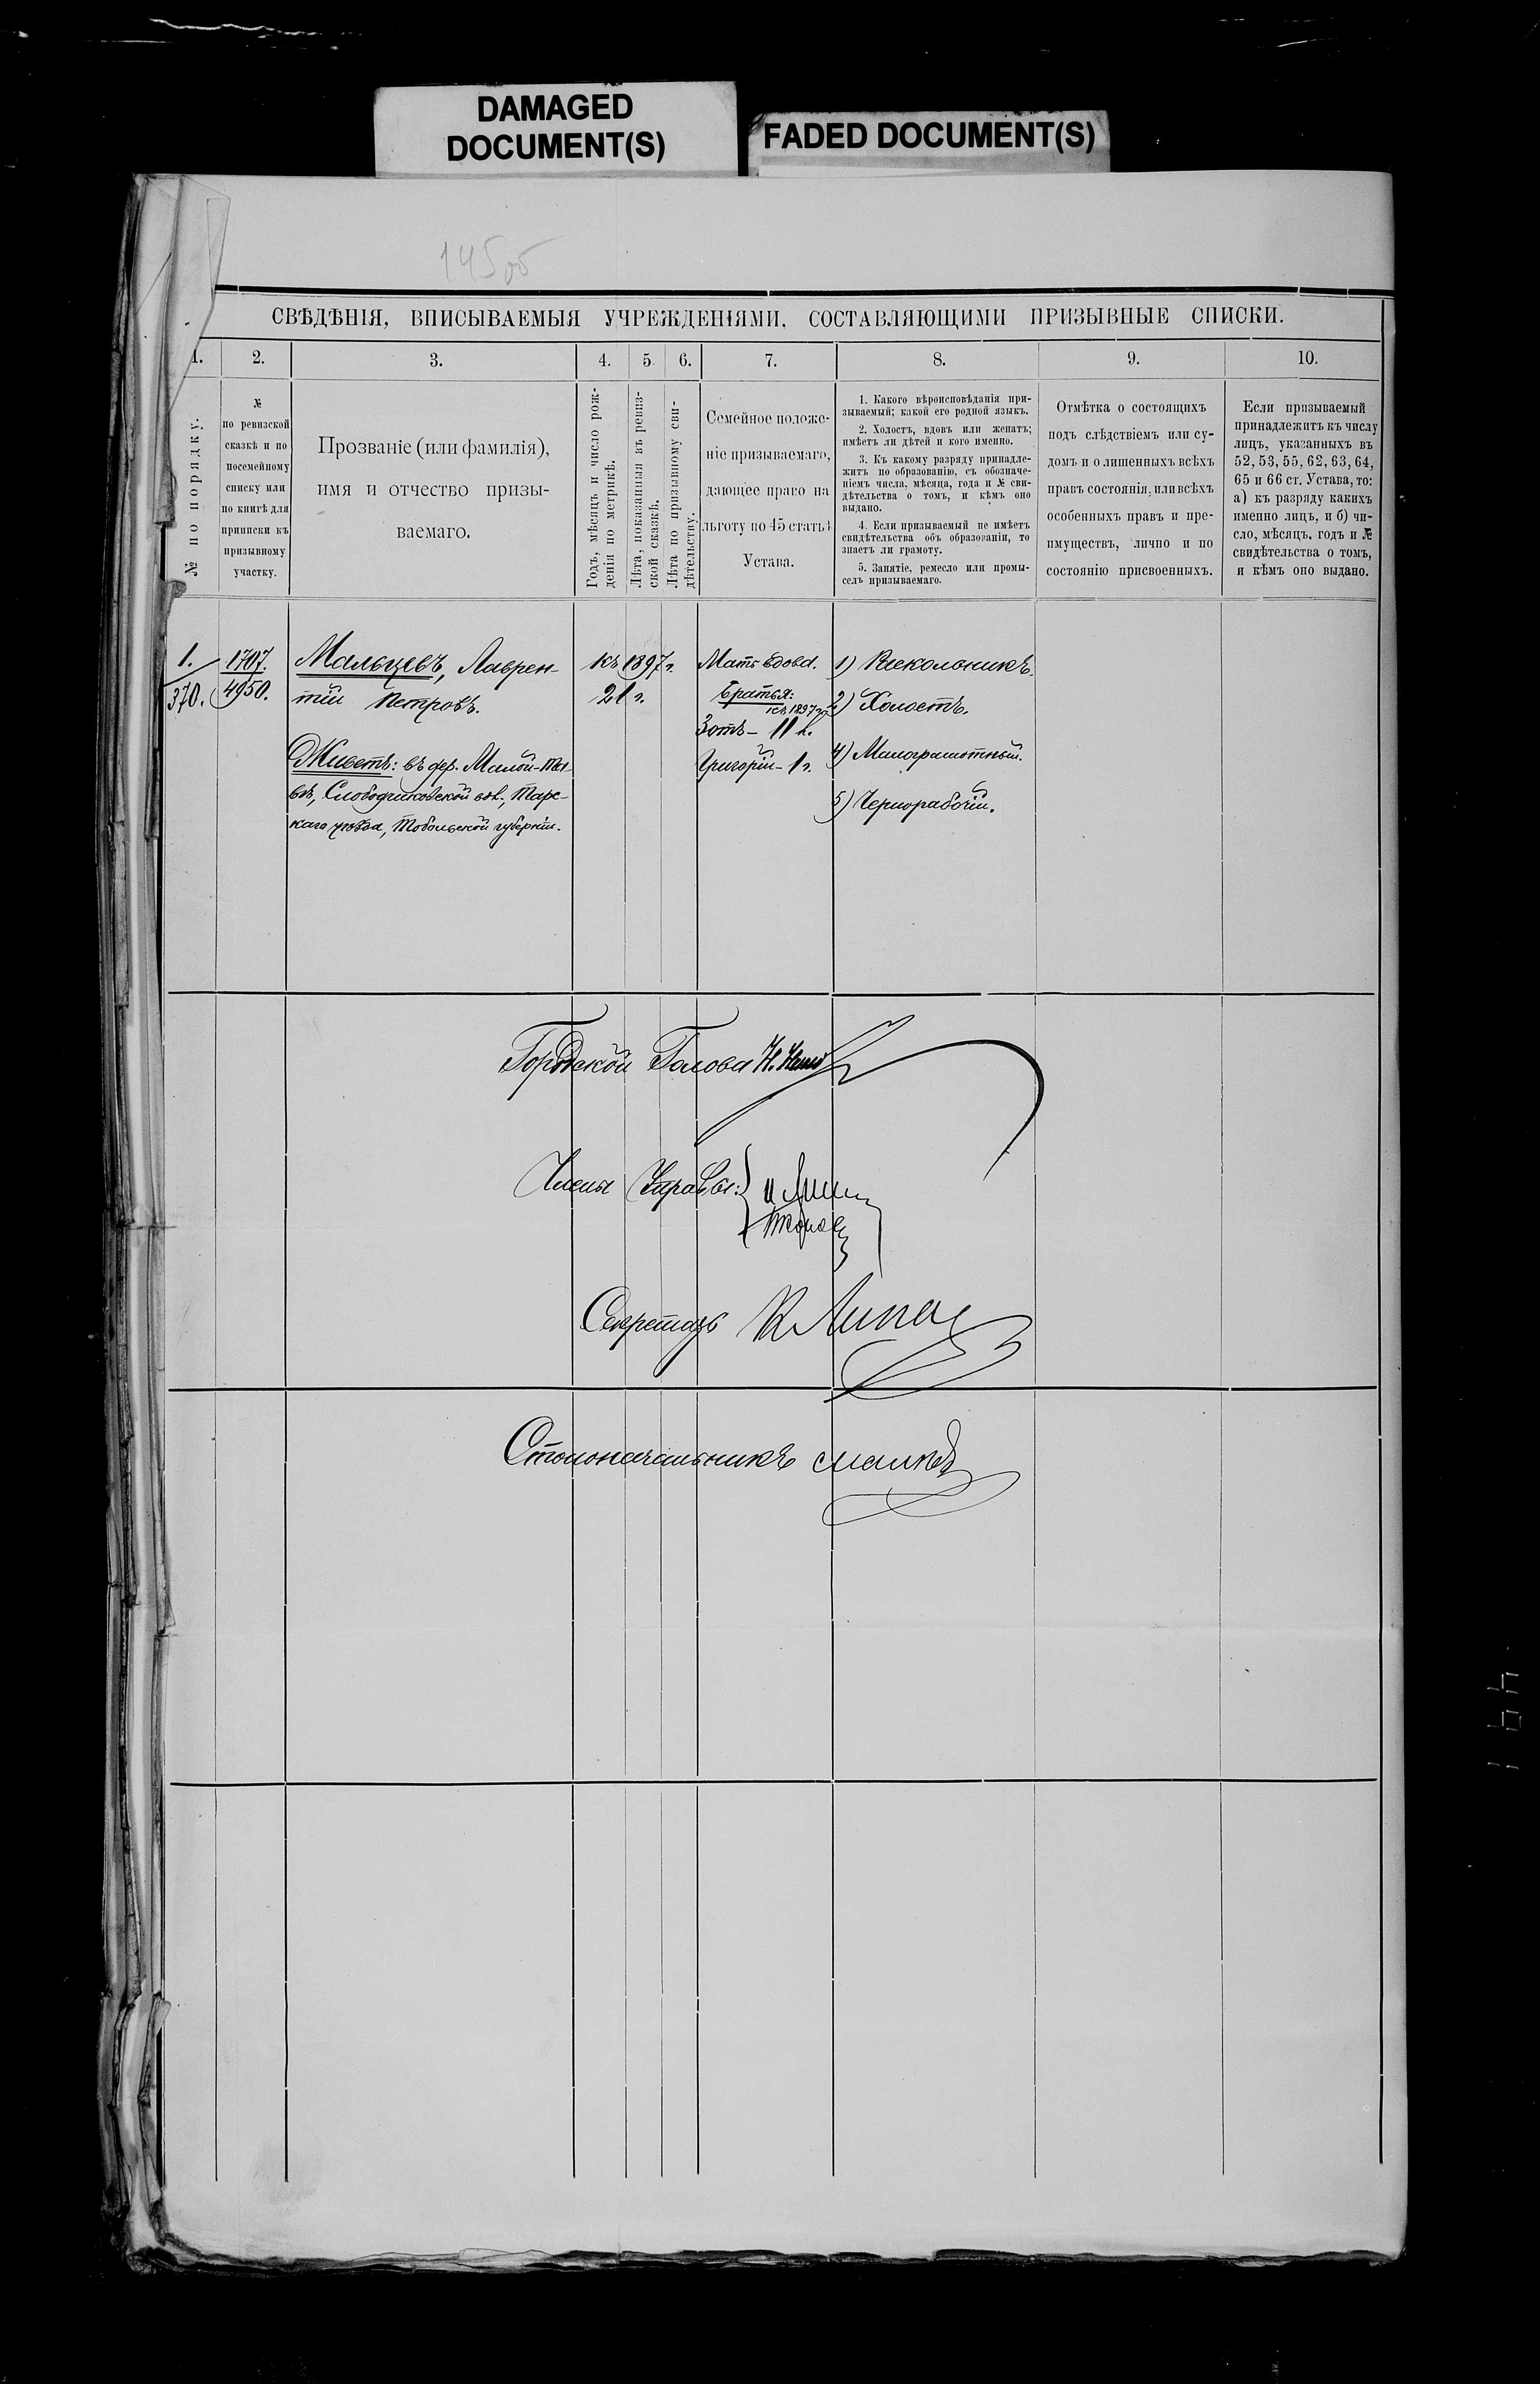 DAMAGED
DOCUMENT(S)
FADED DOCUMENT(S)
145об
СВѢДѢНІЯ, ВПИСЫВАЕМЫЯ УЧРЕЖДЕНІЯМИ, СОСТАВЛЯЮЩИМИ ПРИЗЫВНЫЕ СПИСКИ.
1.
2.
3.
4.
5.
6.
7.
8.
9.
10.
№ по порядку.
№
по ревизской
сказкѣ и по
посемейному
списку или
по книгѣ для
приписки къ
призывному
участку.
Прозваніе (или фамилія),
имя и отчество призы-
ваемаго.
Годъ, мѣсяцъ и число рож-
денія по метрикѣ.
Лѣта, показанныя въ ревиз-
ской сказкѣ.
Лѣта по призывному сви-
дѣтельству.
Семейное положе-
ніе призываемаго,
дающее право на
льготу по 45 статьѣ
Устава.
1. Какого вѣроисповѣданія при-
зываемый; какой его родной языкъ.
2. Холостъ, вдовъ или женатъ;
имѣетъ ли дѣтей и кого именно.
3. Къ какому разряду принадле-
житъ по образованію, съ обозначе-
ніемъ числа, мѣсяца, года и № сви-
дѣтельства о томъ, и кѣмъ оно
выдано.
4. Если призываемый не имѣетъ
свидѣтельства объ образованіи, то
знаетъ ли грамоту.
5. Занятіе, ремесло или промы-
селъ призываемаго.
Отмѣтка о состоящихъ
подъ слѣдствіемъ или су-
домъ и о лишенныхъ всѣхъ
правъ состоянія, или всѣхъ
особенныхъ правъ и пре-
имуществъ, лично и по
состоянію присвоенныхъ.
Если призываемый
принадлежитъ къ числу
лицъ, указанныхъ въ
52, 53, 55, 62, 63, 64,
65 и 66 ст. Устава, то:
а) къ разряду какихъ
именно лицъ, и б) чи-
сло, мѣсяцъ, годъ и №
свидѣтельства о томъ,
и кѣмъ оно выдано.
1.
370.
1707.
4950.
Мальцевъ, Лаврен-
тій Петровъ.
Живетъ: въ дер. Малой-
вѣ, Слободчиковской вол., Тарс-
каго уѣзда, Тобольской губерніи.
Къ 1897 г.
21 г.
Мать вдова.
Братья:
къ 1897 г.
Зотъ – 11 л.
Григорій – 1 г.
1) Раскольникъ.
2) Холостъ.
4) Малограмотный.
5) Чернорабочій.
Городской Голова Н.
Члены Управы:
Секретарь
Столоначальникъ